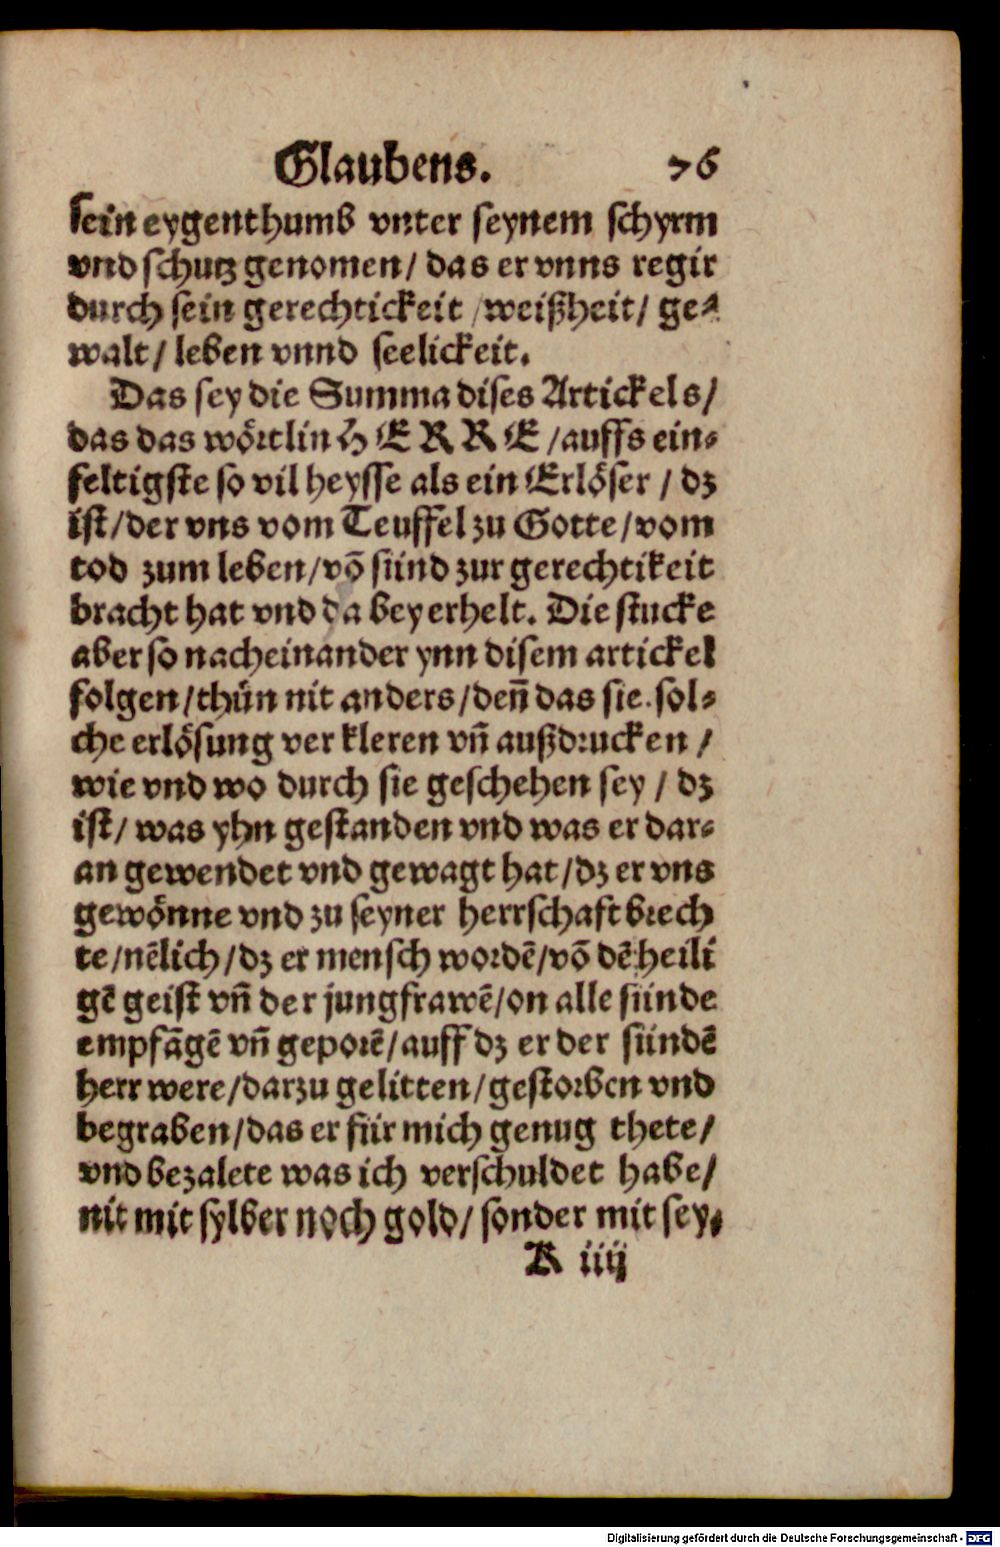 Glaubens. 76
sein eygenthumb vnter seynem schyrm
vnd schutz genomen/ das er vnns regir
durch sein gerechtickeit /weißheit/ ge⸗
walt/ leben vnnd seelickeit.
Das sey die Summa dises Artickels/
das das wörtlin HERRE/auffs ein⸗
feltigste so vil heysse als ein Erlöser / dz
ist/der vns vom Teuffel zu Gotte/vom
tod zum leben/võ sünd zur gerechtikeit
bracht hat vnd da bey erhelt. Die stucke
aber so nacheinander ynn disem artickel
folgen/thün nit anders/deñ das sie sol⸗
che erlösung ver kleren vñ außdrucken /
wie vnd wo durch sie geschehen sey / dz
ist/ was yhn gestanden vnd was er dar⸗
an gewendet vnd gewagt hat/dz er vns
gewönne vnd zu seyner herrschaft brech
te/nẽlich/dz er mensch wordẽ/võ dẽ heili
gẽ geist vñ der jungfrawẽ/on alle sünde
empfãgẽ vñ geporẽ/auff dz er der sündẽ
herr were/darzu gelitten/gestorben vnd
begraben/das er für mich genug thete/
vnd bezalete was ich verschuldet habe/
nit mit sylber noch gold/ sonder mit sey⸗
K iiij
Digitalisierung gefördert durch die Deutsche Forschungsgemeinschaft - DFG